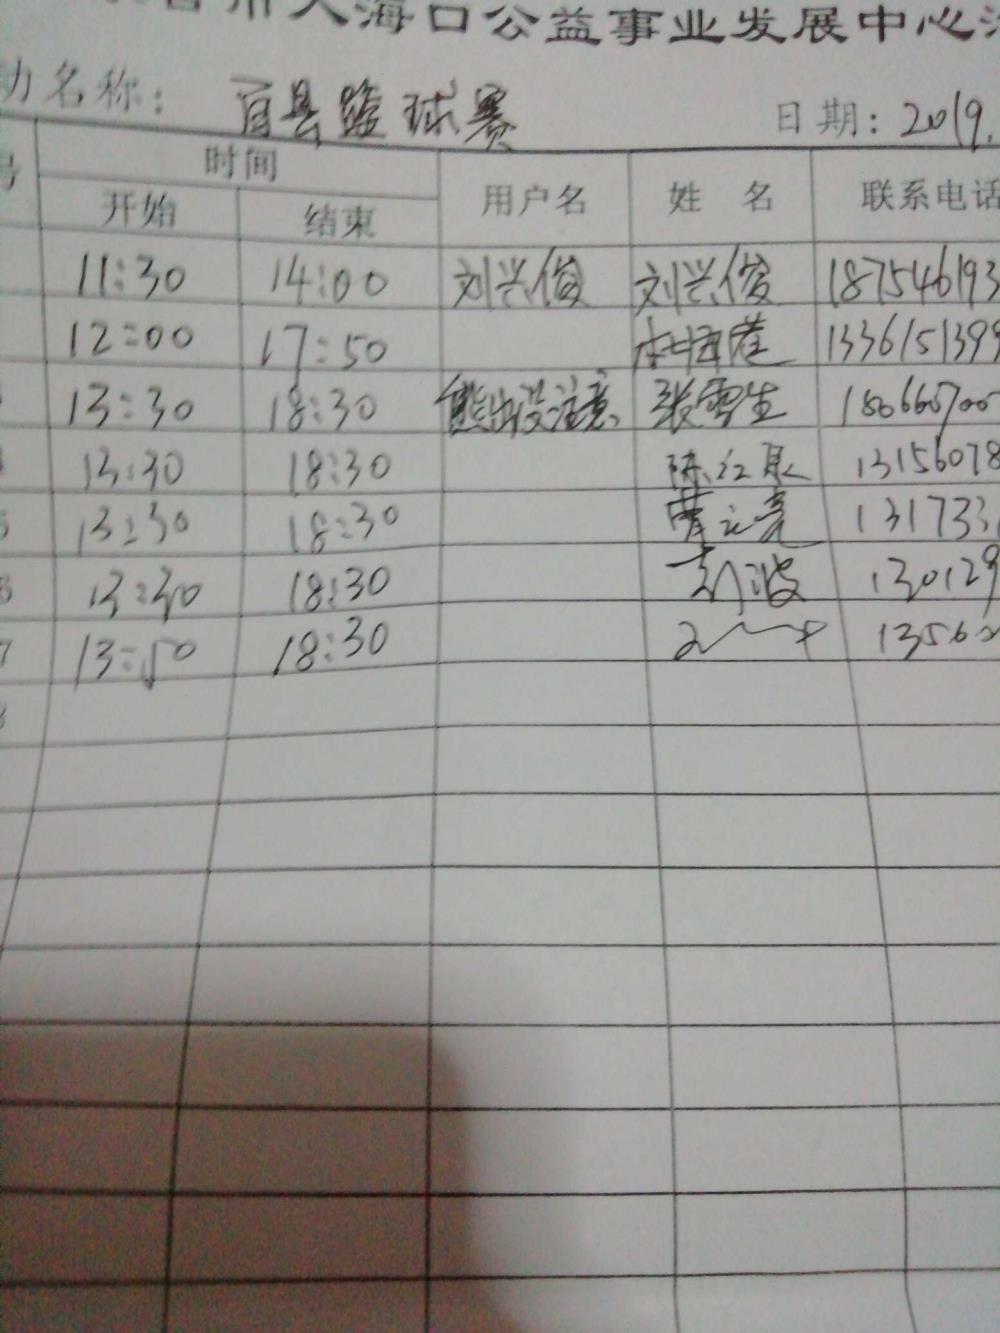 大海口公益事业发展中心
动名称: 百县篮球赛 日期: 2019.
号 时间 用户名 姓 名 联系电话
开始 结束
11:30 14:00 刘兴俊 刘兴俊 187546193
12:00 17:50 1336151399
13:30 18:30 熊出没注意 张雪生
13:30 18:30 陈红 13156078
5 13:30 18:30 曹元亮 131733
6 13:30 18:30 刘波 130129
7 13:50 18:30 1356
8